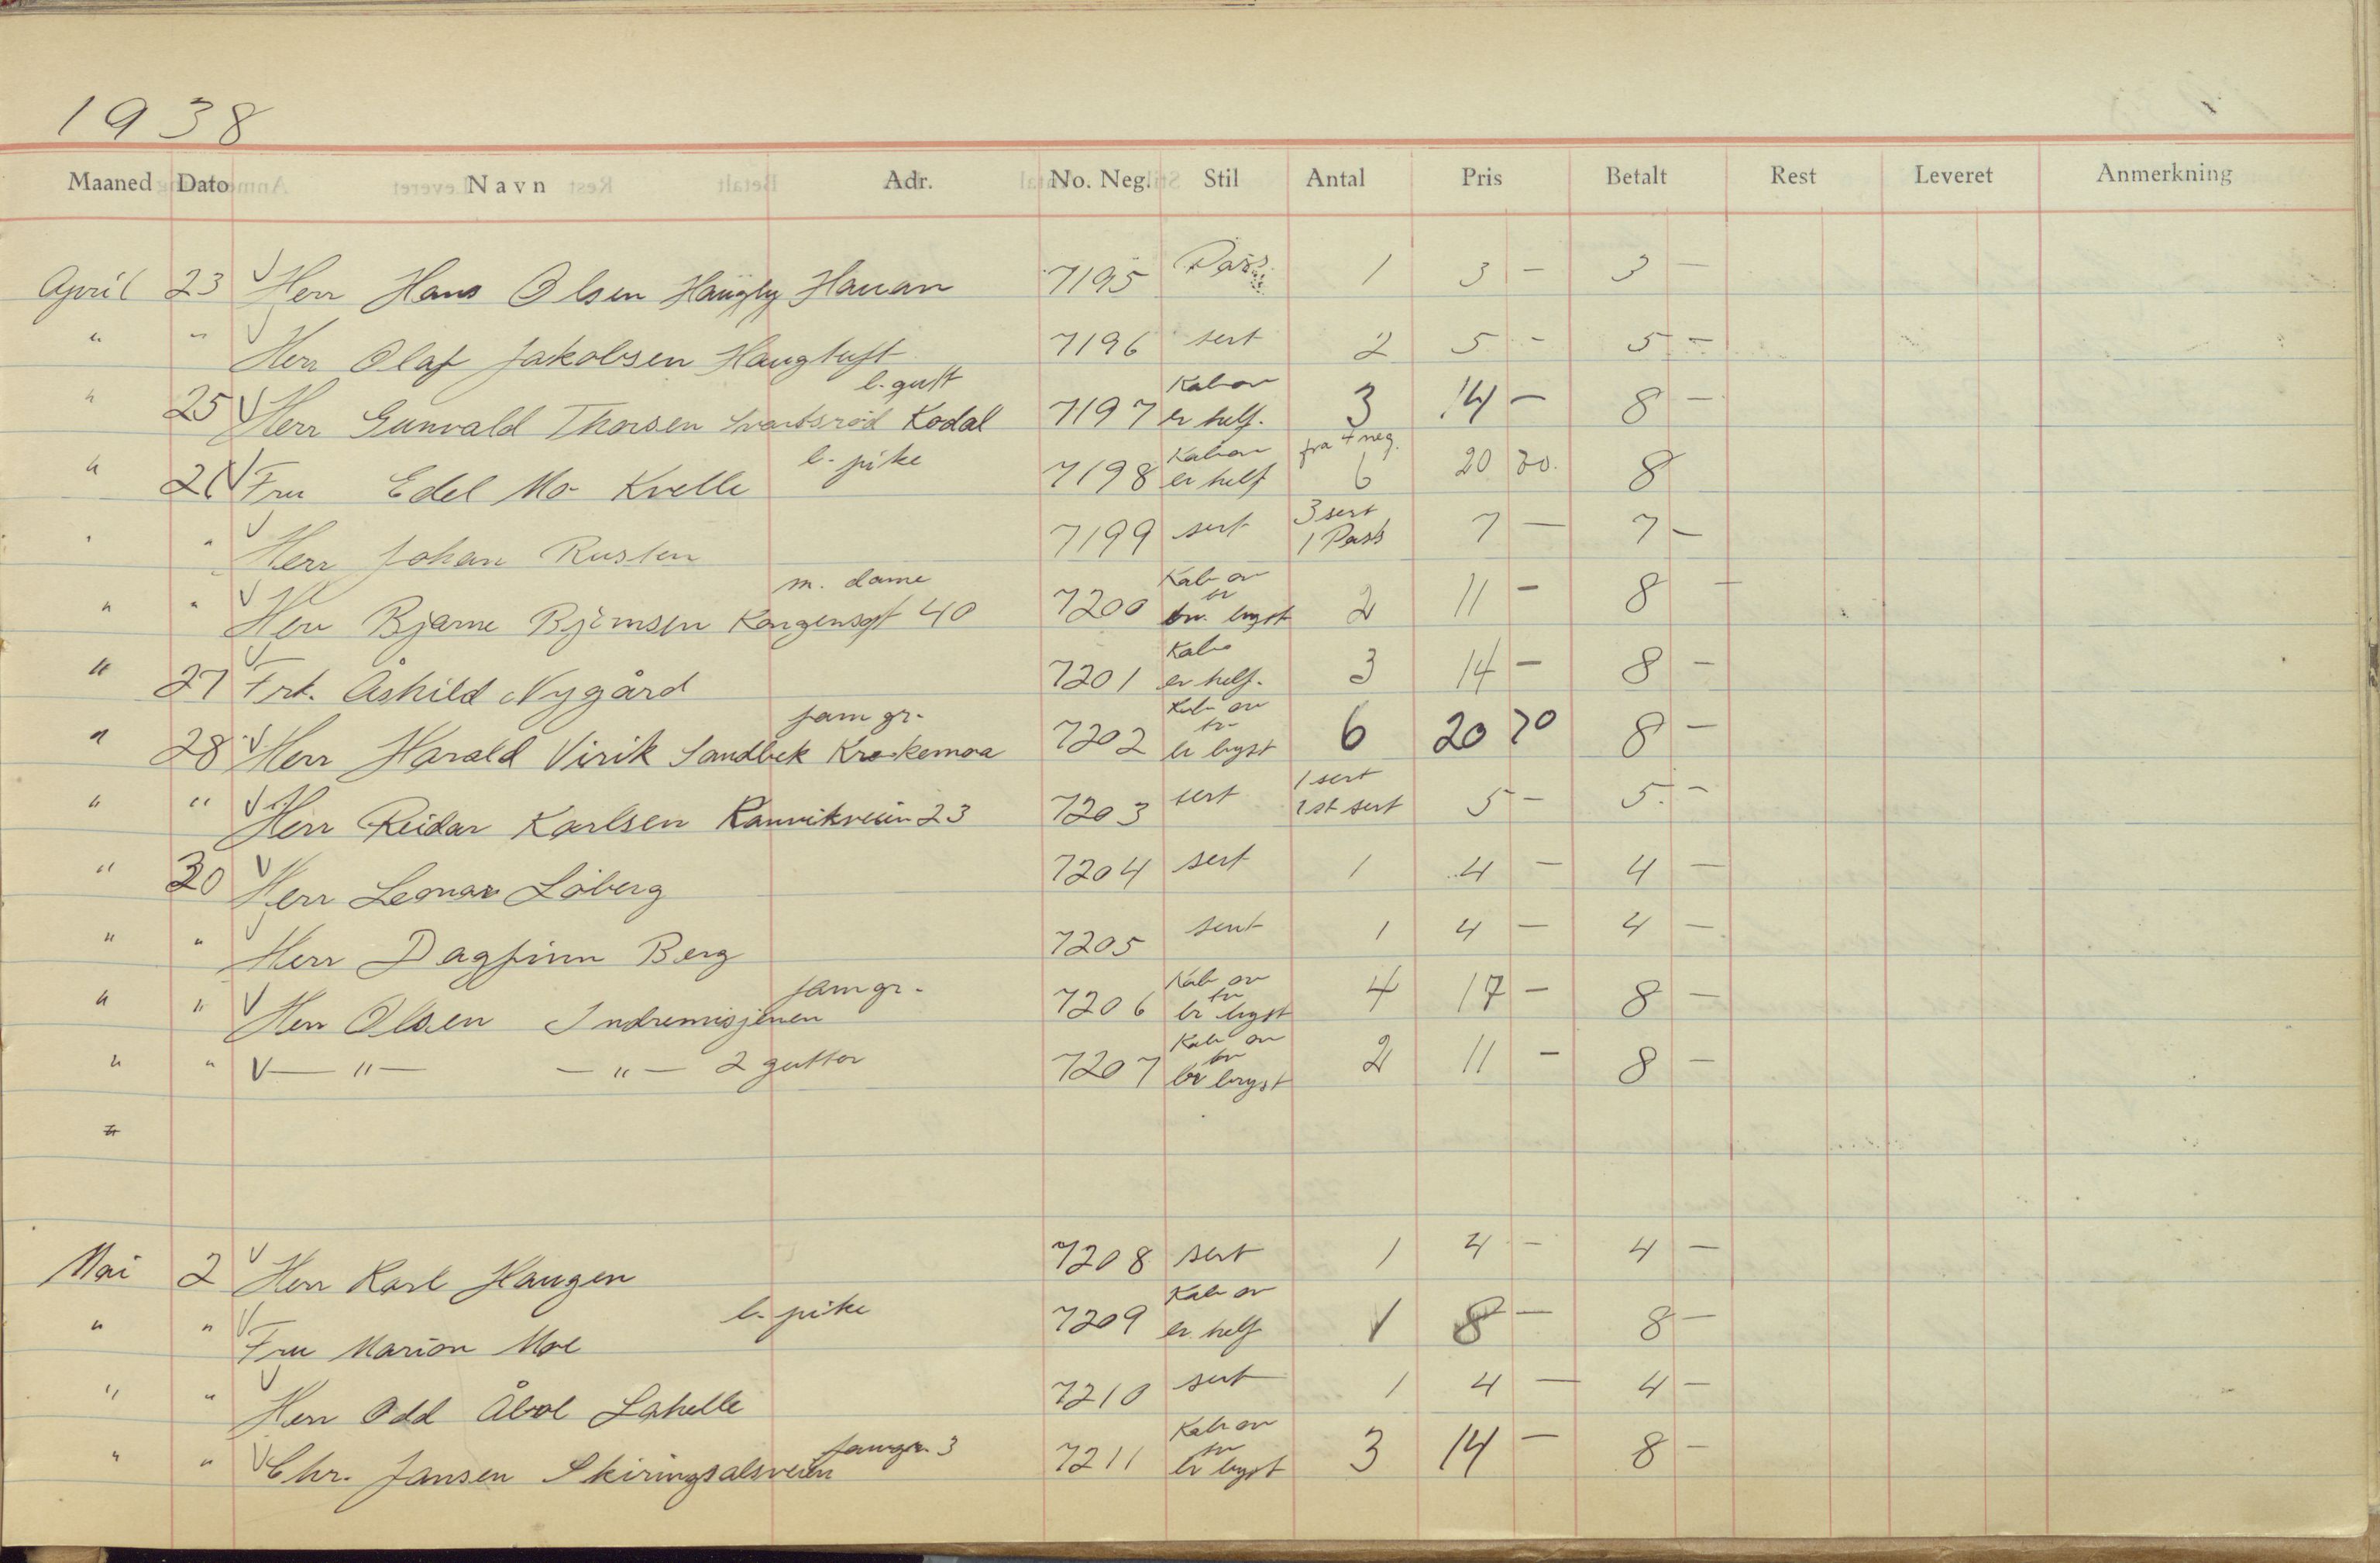 1938
Maaned Dato Navn Adr. No. Neg. Stil Antal Pris Betalt Rest Leveret Anmerkning
April 23 V Herr Hans Olsen Haugby Hauan 7195 Pass 1 3 - 3 -
" " V Herr Olaf Jakobsen Haugtuft 7196 sert 2 5 - 5 -
b. gutt Kab ov
" 25 V Herr Gunvald Thorsen Svartsrød Kodal 7197 er helf. 3 14 - 8 -
b. pike Kab ov fra 4 neg.
" 26 V Fru Edel Mo Kvelle 7198 er helf 6 20 70. 8
3 sert
" " V Herr Johan Rusten 7199 sert 1 Pass 7 - 7 -
m. dame Kab ov
br
" " V Herr Bjarne Bjørnsen Kongensgt 40 7200 br. bryst 2 11 - 8 -
Kab
" 27 V Frk. Åshild Nygård 7201 er helf. 3 14 - 8 -
fam gr. Kab ov
br
" 28 V Herr Harald Virik Sandbek Krokemoa 7202 br bryst 6 20 70 8 -
1 sert
" " V Herr Reidar Karlsen Ranvikveien 23 7203 sert 1 st sert 5 - 5. -
" 30 V Herr Leonar Löberg 7204 sert 1 4 - 4 -
" " V Herr Dagfinn Berg 7205 sert 1 4 - 4 -
fam gr. Kab ov
br
" " V Herr Olsen Indremisjonen 7206 br bryst 4 17 - 8 -
Kab ov
br
" " V — " — — " — 2 gutter 7207 br bryst 2 11 - 8 -
"
Mai 2 V Herr Karl Haugen 7208 sert 1 4 - 4 -
b. pike Kab ov
" " V Fru Marion Moe 7209 er helf 1 8 - 8 -
" " V Herr Odd Åbol Lahelle 7210 sert 1 4 - 4 -
famgr. 3 Kab ov
br
" " V Chr. Jansen Skiringsalsveien 7211 br bryst 3 14 - 8 -